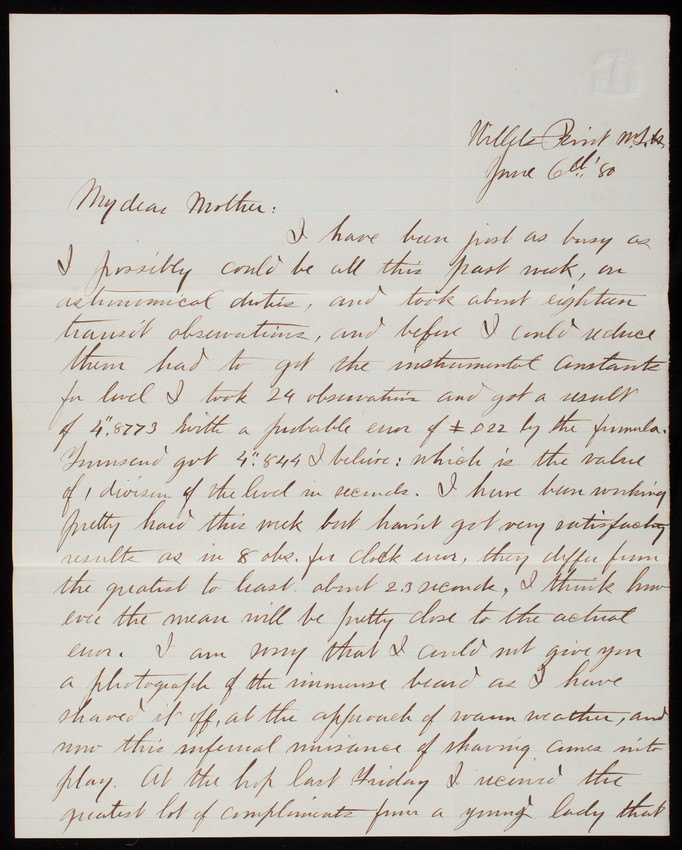 Willets Point N.Y.H.
June 6th '80
My dear Mother:
I have been just as busy as
I possibly could be all this past week, on
astronomical duties, and took about eighteen
transit observations, and before I could reduce
them had to get the instrumental constants
for level I took 24 observations and got a result
of 4".8773 with a probable error of ± .022 by the formula.
Townsend got 4".844 I believe: which is the value
of 1 division of the level in seconds. I have been working
pretty hard this week but havn't got very satisfactory
results as in 8 obs. for clock error, they differ from
the greatest to least about 2.3 seconds, I think how
ever the mean will be pretty close to the actual
error. I am sorry that I could not give you
a photograph of the immense beard as I have
shaved it off, at the approach of warm weather, and
now this infernal nuisance of shaving comes into
play. At the hop last Friday I received the
greatest lot of compliments from a young lady that